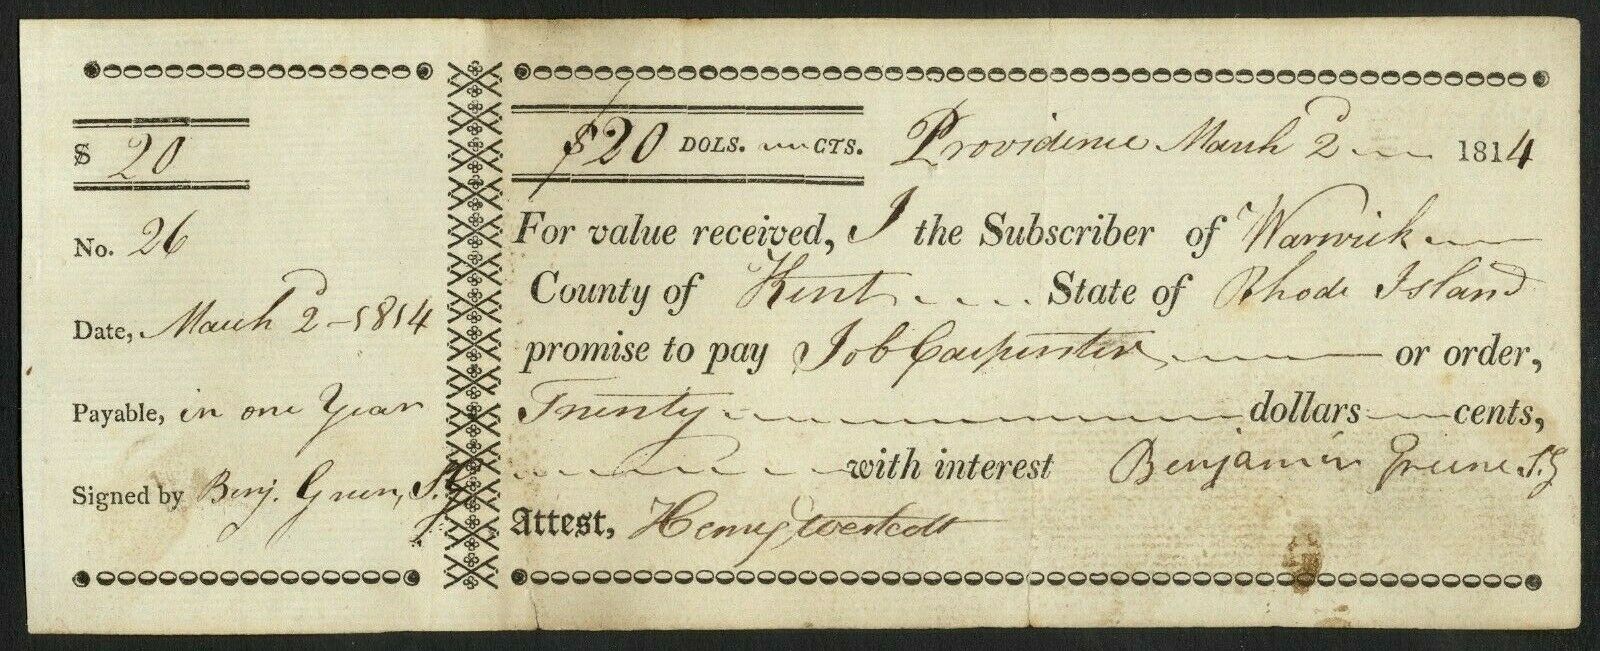 $ 20
No. 26
Date, March 2d - 1814
Payable, in one Year
Signed by Benj. Green, S.G
$20 DOLS. CTS. Providence March 2d 1814
For value received, I the Subscriber of Warwick
County of Kent State of Rhode Island
promise to pay Job Carpenter or order,
Twenty dollars cents,
with interest Benjamin Greene S.G
Attest, Henry